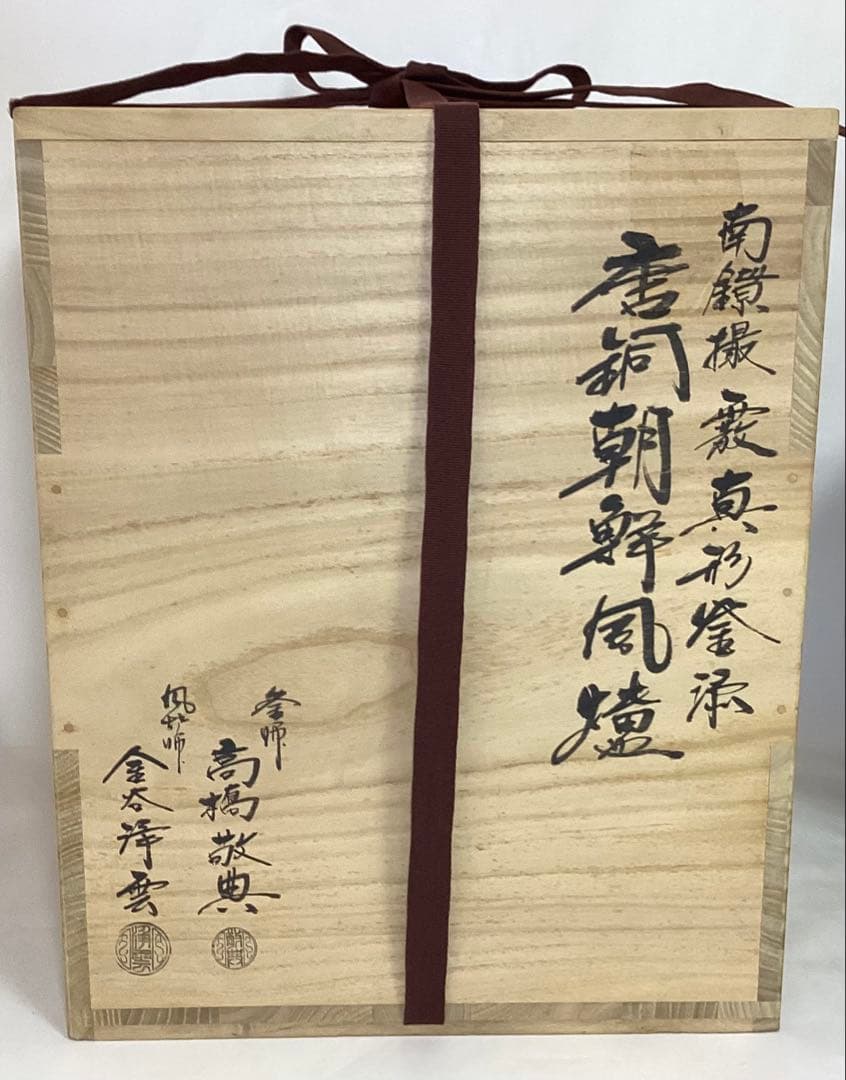 南鐐撮 霰真形釜添
唐銅朝鮮風爐
釜師
高橋敬典
風炉師
金谷浄雲